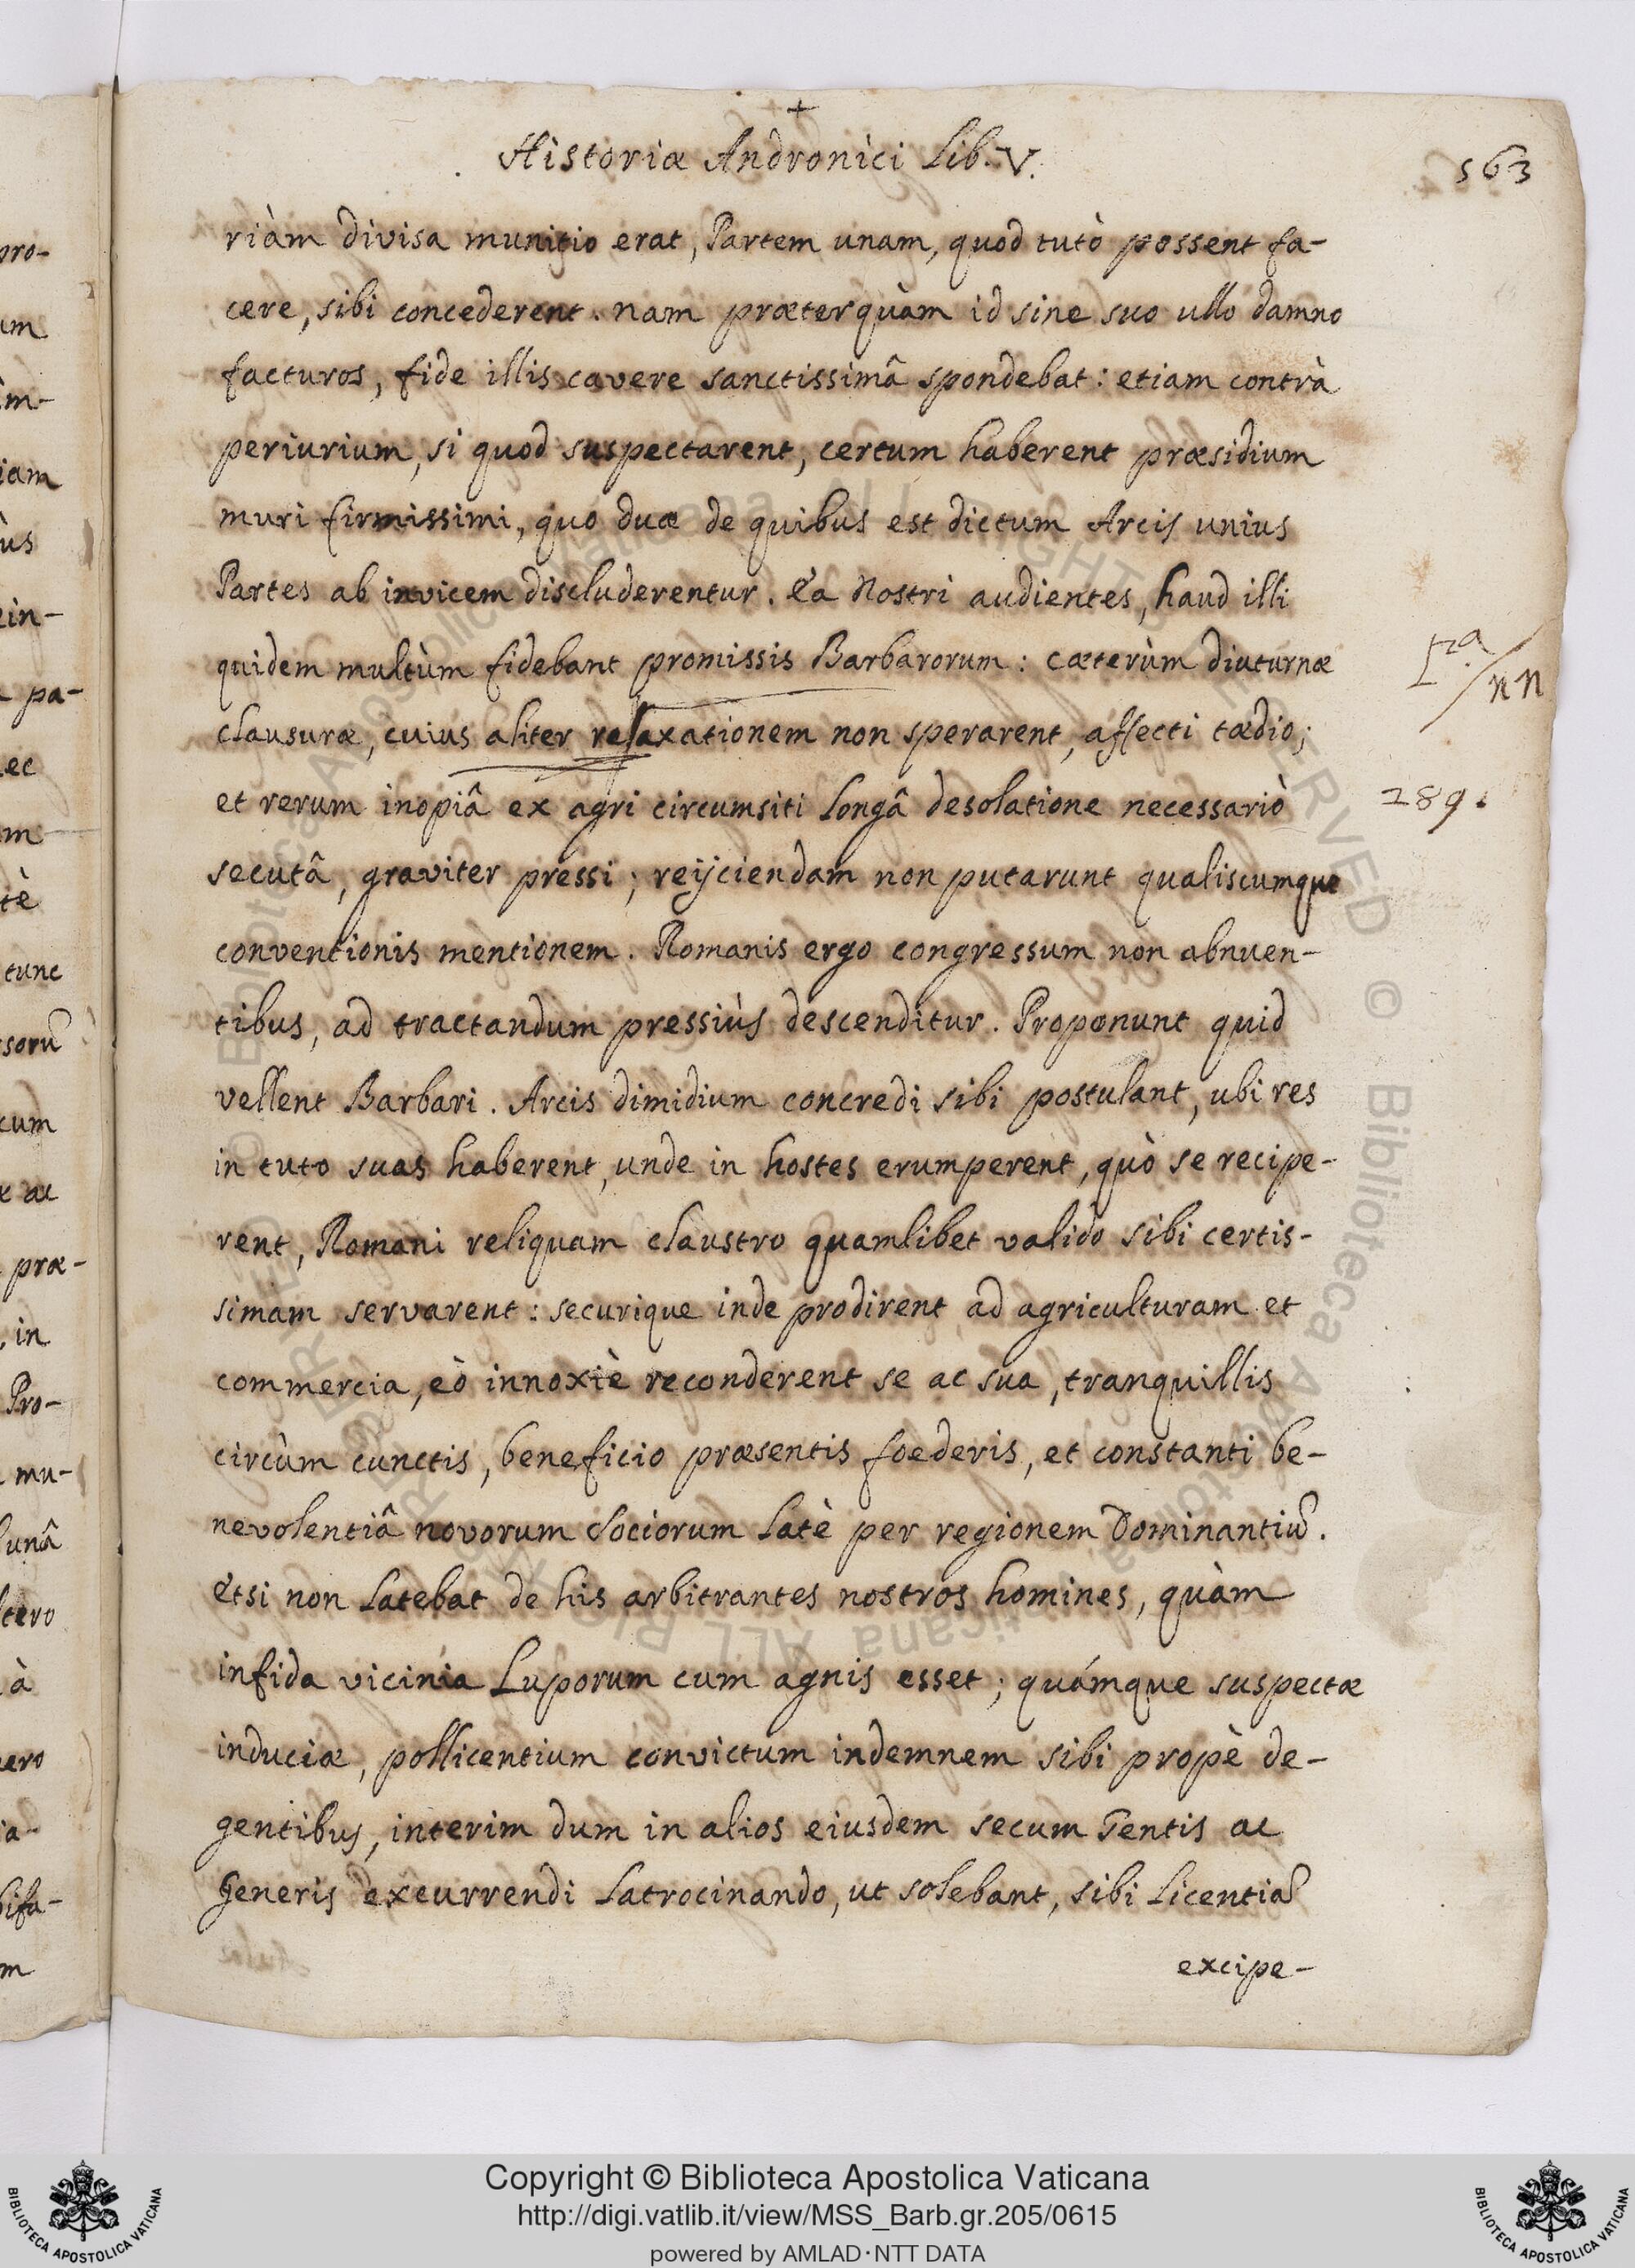 +
Historiæ Andronici Lib. V.
563
riàm divisa munitio erat, Partem unam, quod tutò possent fa-
cere, sibi concederent. nam præterquàm id sine suo ullo damno
facturos, fide illis cavere sanctissimâ spondebat: etiam contrà
periurium, si quod suspectarent, certum haberent præsidium
muri firmissimi, quo duæ de quibus est dictum Arcis unius
Partes ab invicem discluderentur. Ea Nostri audientes, haud illi
quidem multùm fidebant promissis Barbarorum: cæterùm diuturnæ
clausuræ, cuius aliter relaxationem non sperarent, affecti tædio;
et rerum inopiâ ex agri circumsiti longâ desolatione necessariò
289.
secutâ, graviter pressi; reijciendam non putarunt qualiscumque
conventionis mentionem. Romanis ergo congressum non abnuen-
tibus, ad tractandum pressiùs descenditur. Proponunt quid
vellent Barbari. Arcis dimidium concredi sibi postulant, ubi res
in tuto suas haberent, unde in hostes erumperent, quò se recipe-
rent, Romani reliquam claustro quamlibet valido sibi certis-
simam servarent: securique inde prodirent ad agriculturam et
commercia, eò innoxiè reconderent se ac sua, tranquillis
circùm cunctis, beneficio præsentis foederis, et constanti be-
nevolentiâ novorum Sociorum latè per regionem Dominantiũ.
Etsi non latebat de his arbitrantes nostros homines, quàm
infida vicinia Luporum cum agnis esset; quámque suspectæ
induciæ, pollicentium convictum indemnem sibi propè de-
gentibus, interim dum in alios eiusdem secum Gentis ac
Generis excurrendi latrocinando, ut solebant, sibi licentiã
excipe-
pro-
um
àm-
iam
ùs
ein-
pa-
ec
m
tè
tunc
sorũ
cum
ac
præ-
, in
Pro-
mu-
lunâ
ltero
à
ero
ia-
bifa-
m
Copyright © Biblioteca Apostolica Vaticana
http://digi.vatlib.it/view/MSS_Barb.gr.205/0615
powered by AMLAD·NTT DATA
BIBLIOTECA APOSTOLICA VATICANA
BIBLIOTECA APOSTOLICA VATICANA